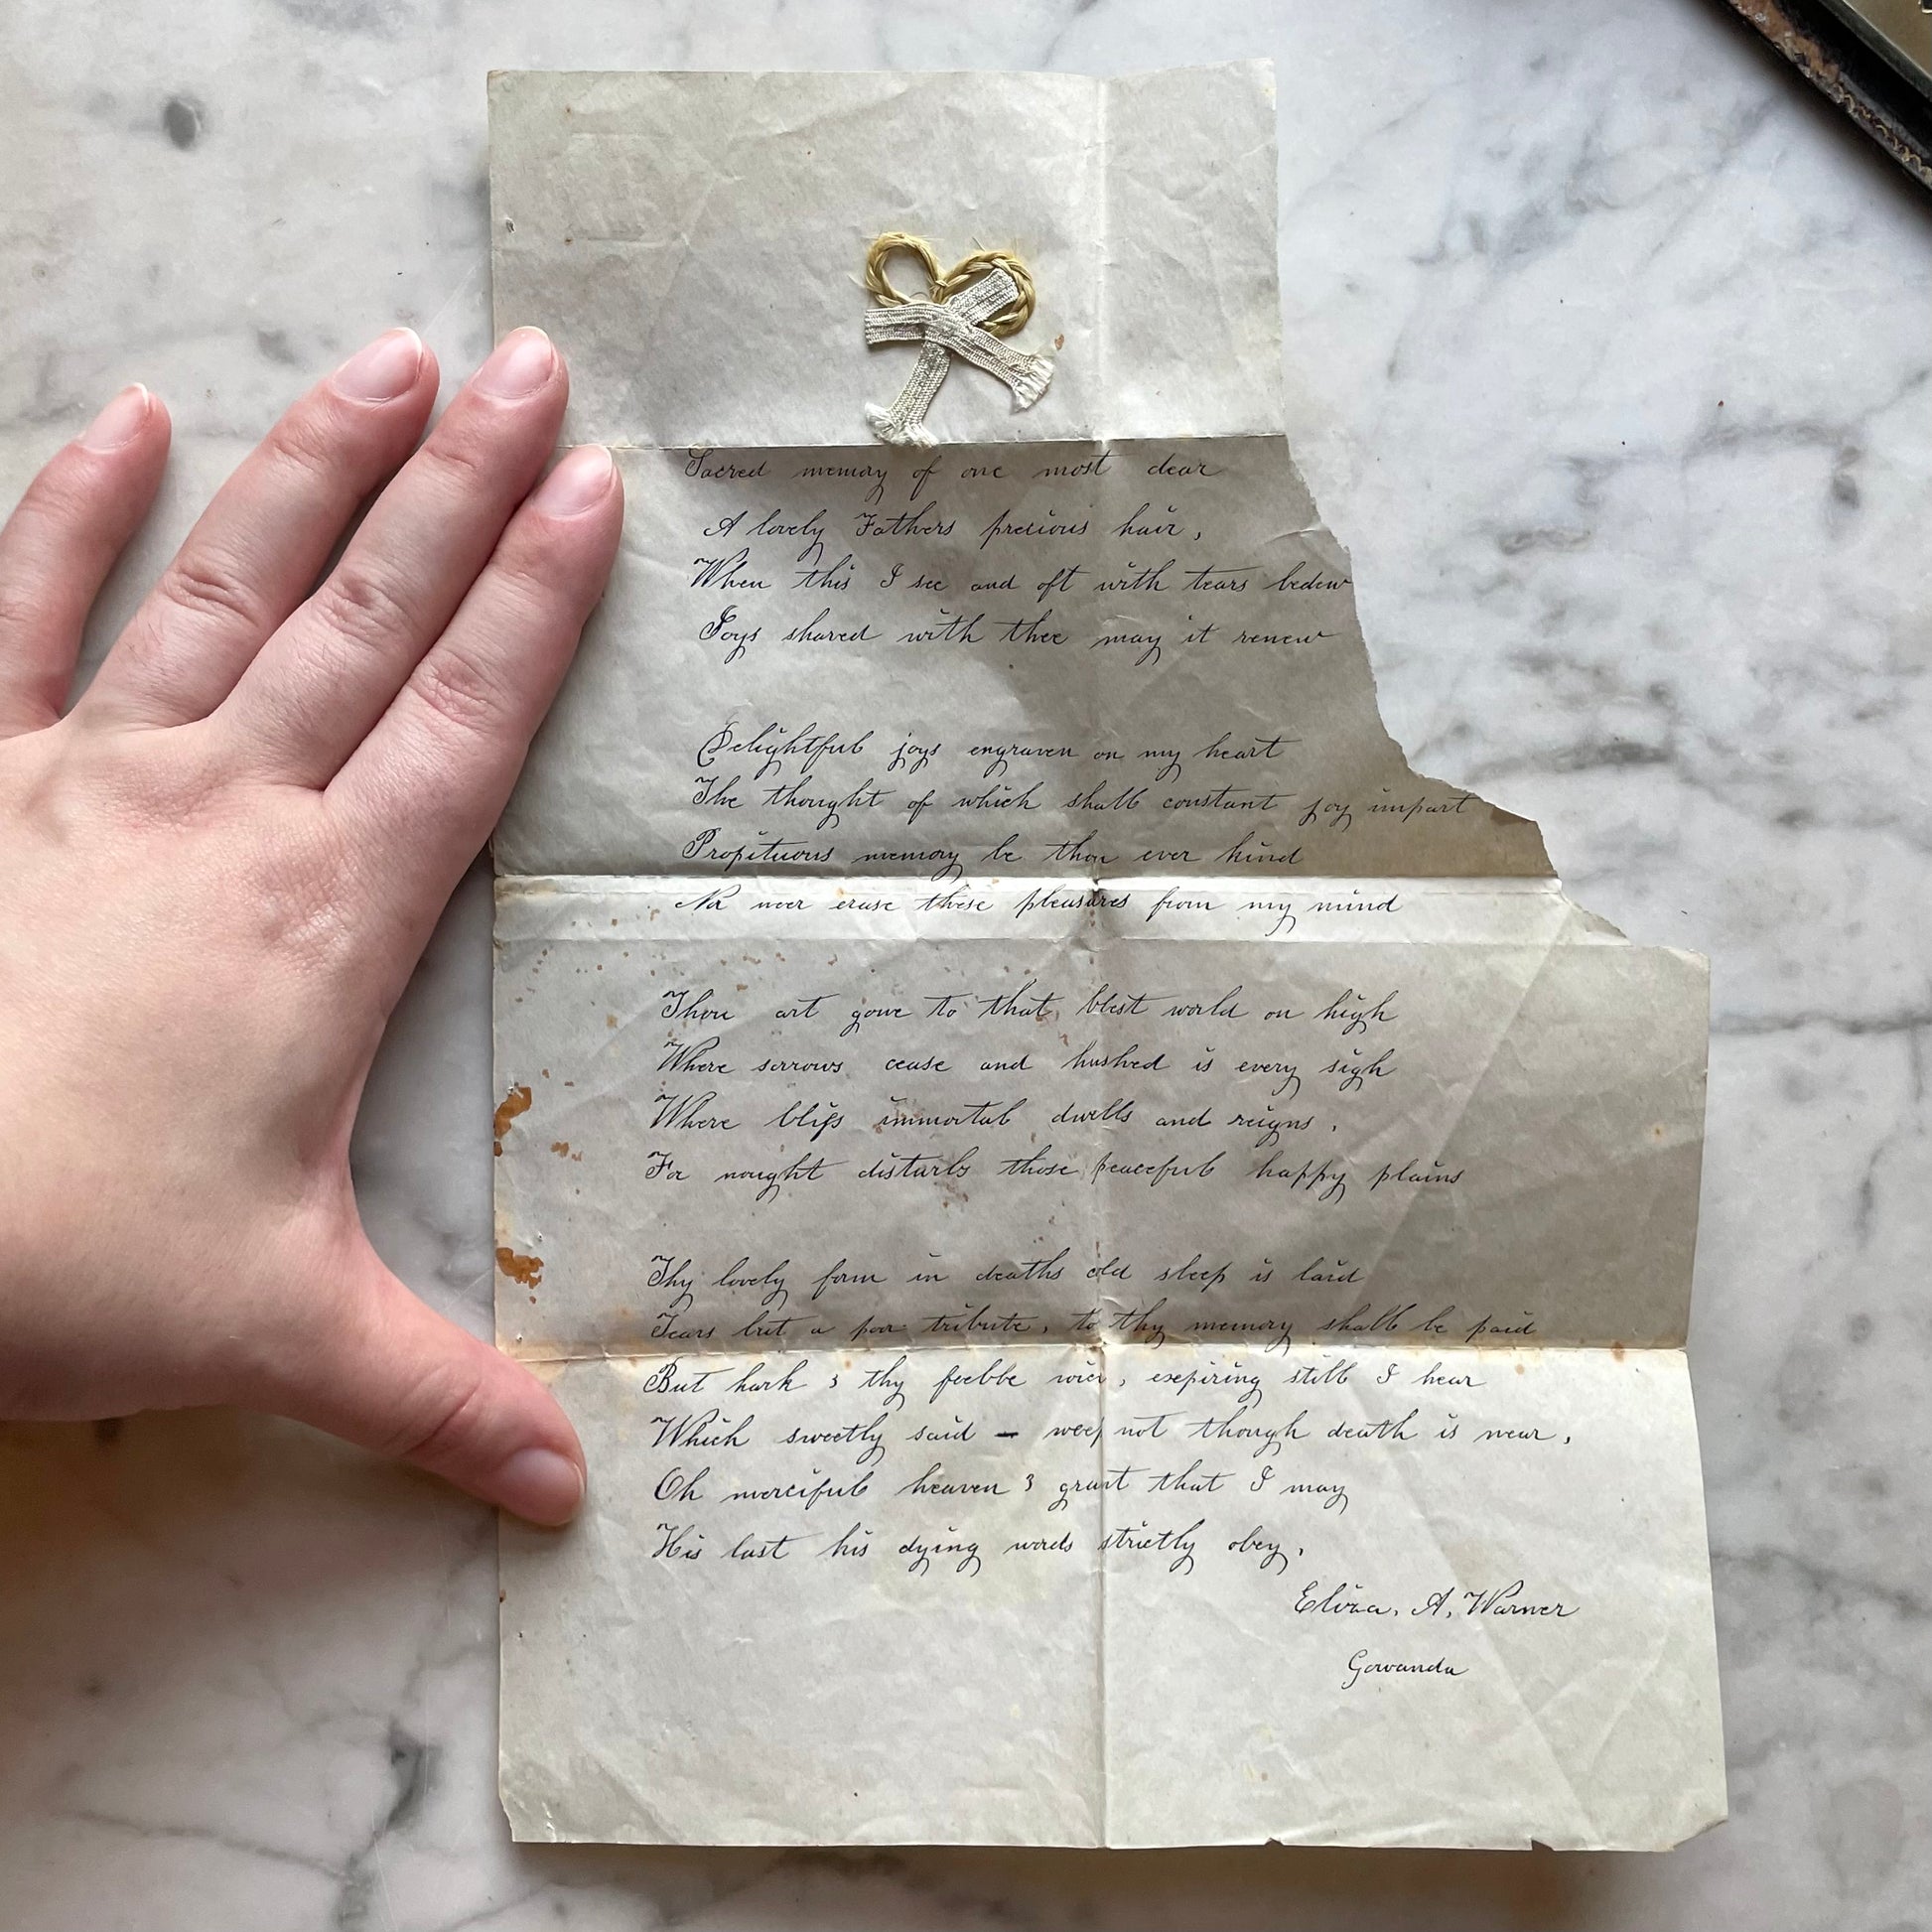 Sacred memory of one most dear
A lovely Fathers precious hair,
When this I see and oft with tears bedew
Joys shared with thee may it renew
Delightful joys engraven on my heart
The thought of which shall constant joy impart
Propituous memory be thou ever kind
Nor never erase these pleasures from my mind
Thou art gone to that blest world on high
Where sorrows cease and hushed is every sigh
Where bliss immortal dwells and reigns,
For nought disturbs those peaceful happy plains
Thy lovely form in deaths cold sleep is laid
Tears but a poor tribute, to thy memory shall be paid
But hark ; thy feeble voice, expiring still I hear
Which sweetly said — weep not though death is near,
Oh merciful heaven ; grant that I may
His last his dying words strictly obey,
Eliza. A. Warner
Gowanda